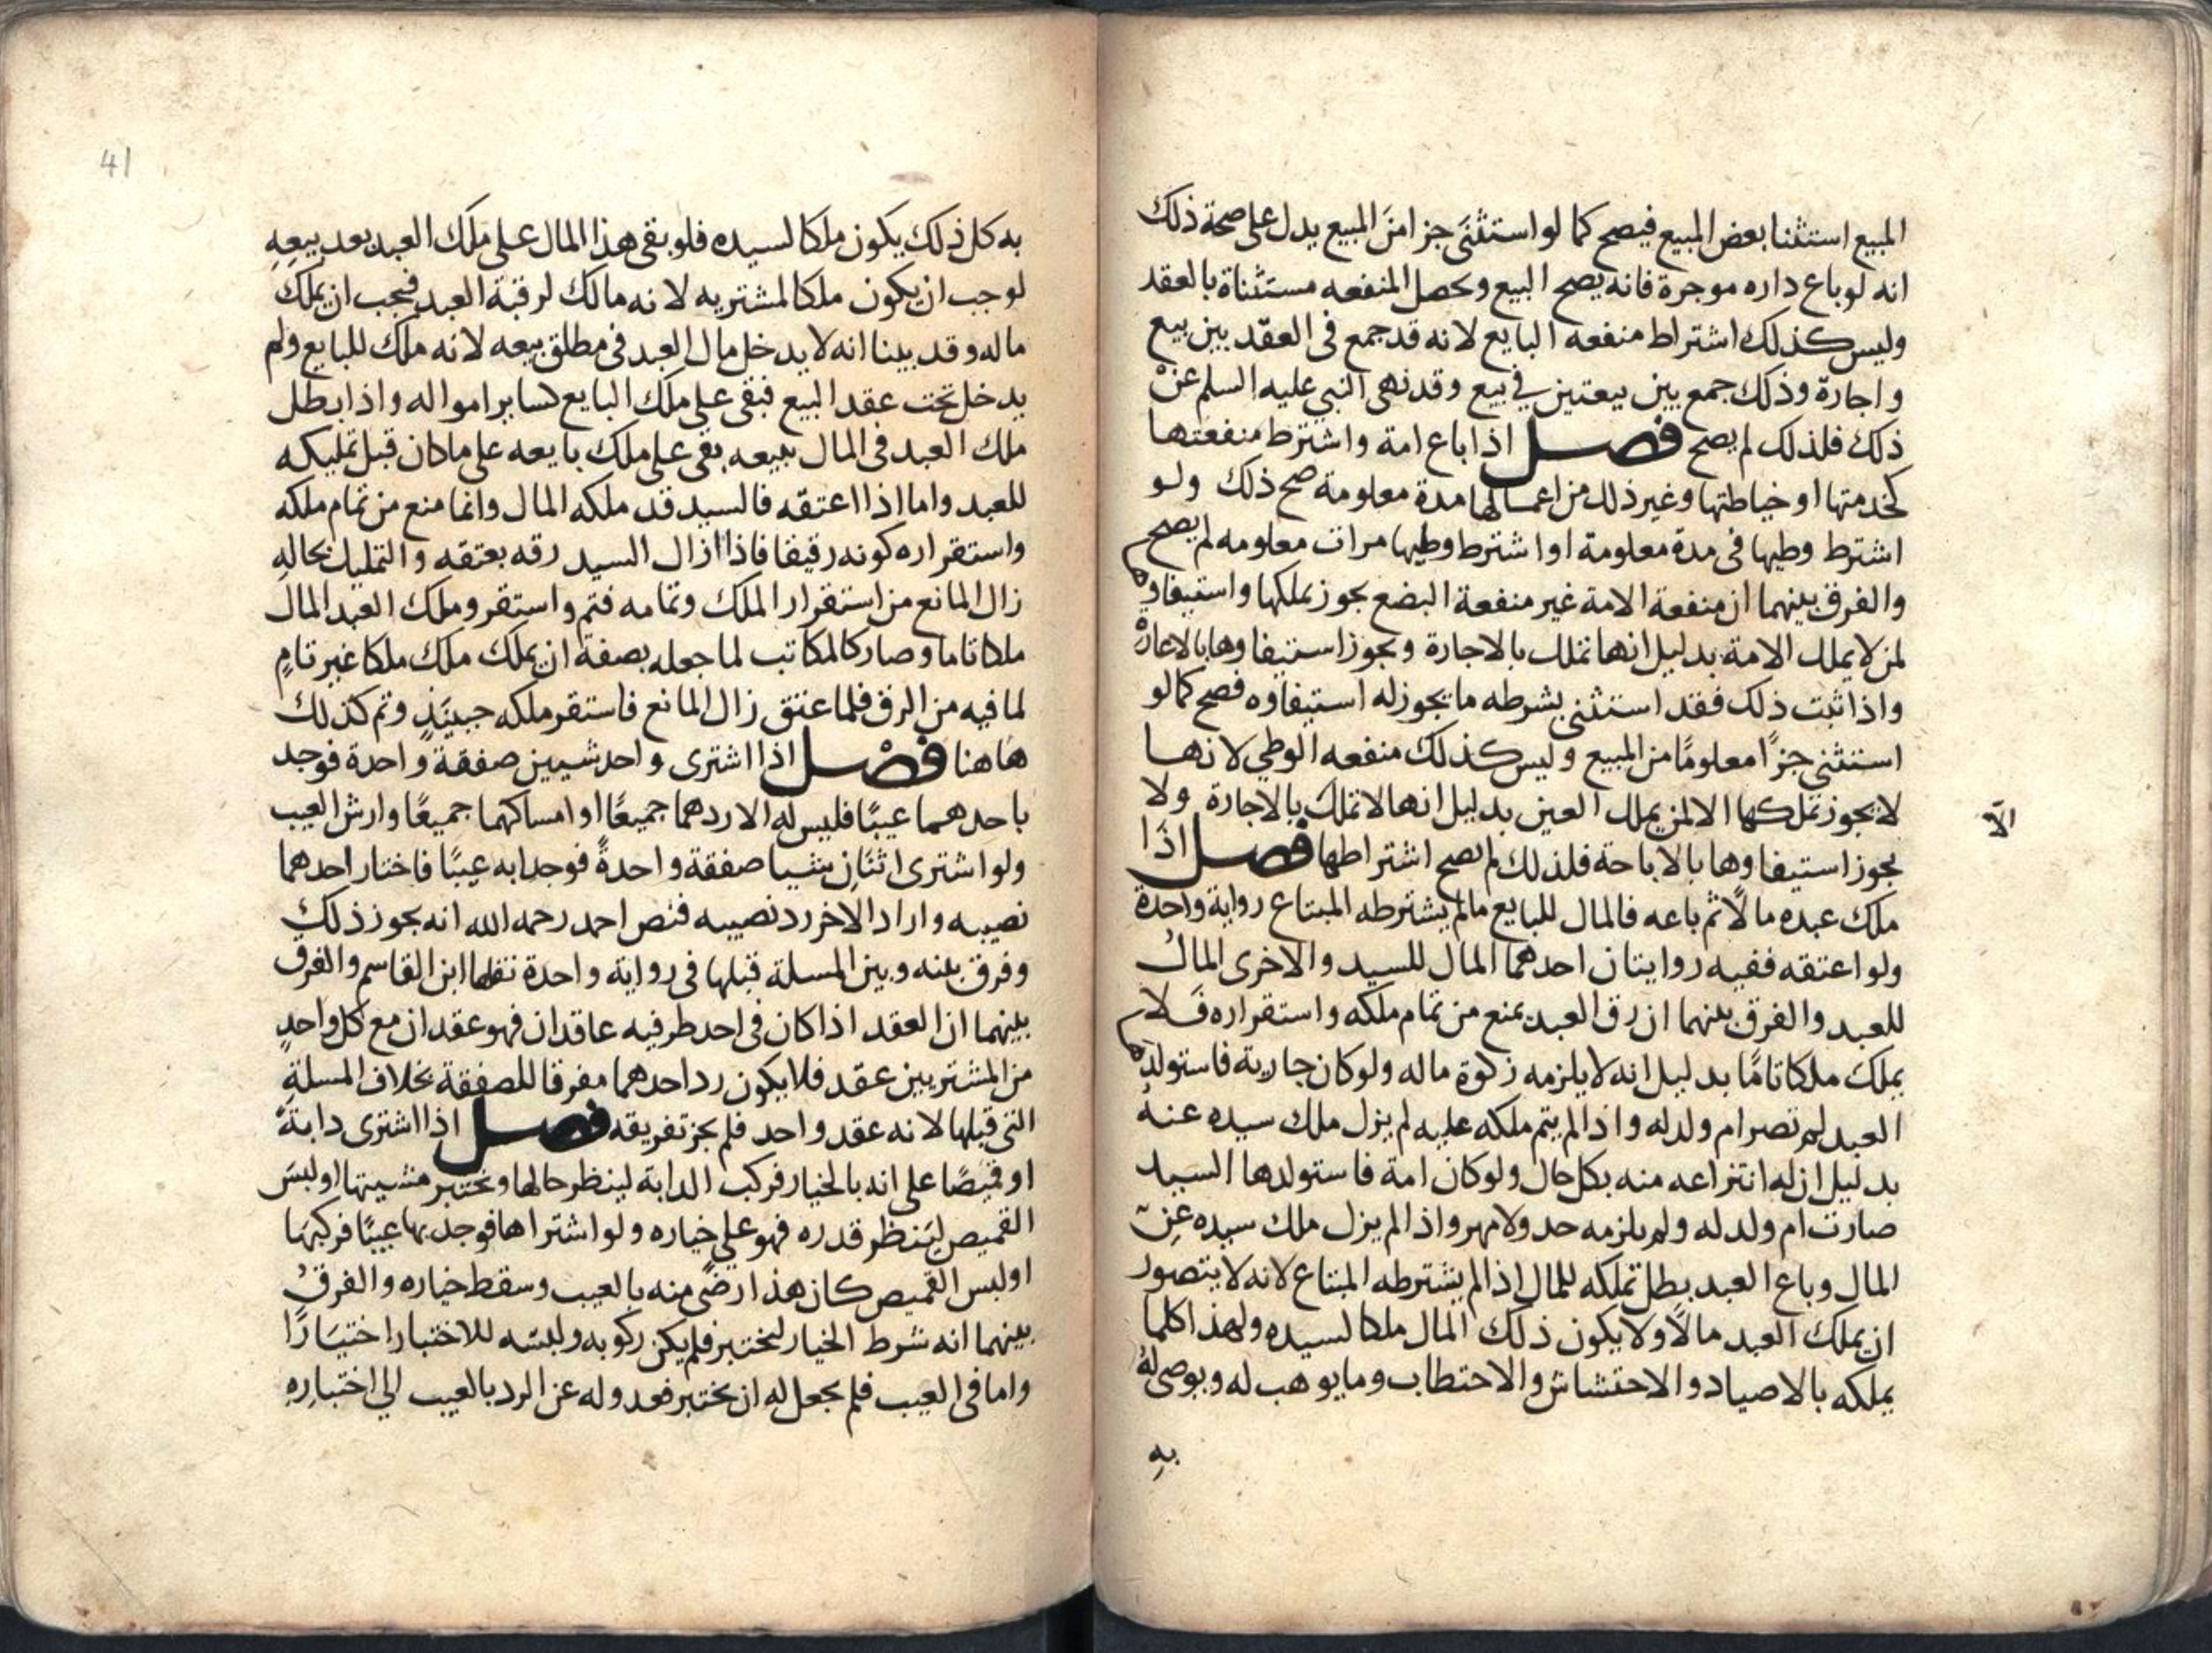 المبيع استثنا بعض المبيع فيصح كما لو استثنَى جزا منَ المبيع يدل على صحة ذلك
انه لو باع داره موجرة فانه يصح البيع وتحصل المنفعه مستثناة بالعقد
وليس كذلك اشتراط منفعه البايع لانه قد جمع فى العقد بين بيع
واجارة وذلك جمع بين بيعتين في بيع وقد نهى النبي عليه السلم عنْ
ذلك فلذلك لم يصح فصل اذا باع امة واشترط منفعتها
كخدمتها او خياطتها وغير ذلك من اعمالها مدة معلومة صح ذلك ولو
اشترط وطيها فى مدة معلومة او اشترط وطيها مرات معلومه لم يصح
والفرق بينهما ان منفعة الامة غير منفعة البضع يجوز تملكها واستيفاوها
لمن لا يملك الامة بدليل انها تملك بالاجارة ويجوز استيفاوها بالاعارة
واذا ثبت ذلك فقد استثنى بشرطه ما يجوز له استيفاوه فصح كما لو
استثنى جزًا معلومًا من المبيع وليس كذلك منفعه الوطي لانها
لا يجوز تملكها الا لمن يملك العين بدليل انها لا تملك بالاجارة ولا
الّا
يجوز استيفاوها بالاباحة فلذلك لم يصح اشتراطها فصل اذَا
ملك عبده مالًا ثم باعه فالمال للبايع مالم يشترطه المبتاع رواية واحدة
ولو اعتقه ففيه روايتان احدهما المال للسيد والاخرى المالُ
للعبد والفرق بينهما ان رق العبد يمنع من تمام ملكه واستقراره فَلا
يملك ملكا تامًا بدليل انه لا يلزمه زكوة ماله ولو كان جارية فاستولدها
العبد لم تصر ام ولد له واذا لم يتم ملكه عليه لم يزل ملك سيده عنهُ
بدليل ان له انتزاعه منه بكل حال ولو كان امة فاستولدها السَيد
صارت ام ولد له ولم يلزمه حد ولا مهر واذا لم يزل ملك سيده عنِ
المال وباع العبد بطل تملكه للمال اذا لم يشترطه المبتاع لانه لا يتصور
ان يملك العبد مالًا ولا يكون ذلك المال ملكا لسيده ولهذا كلما
يملكه بالاصياد والاحتشاش والاحتطاب وما يوهب له ويوصى لهُ
بهِ
41
به كل ذلك يكون ملكا لسيده فلو بقى هذا المال على ملك العبد بعد بيعِهِ
لوجب ان يكون ملكا لمشتريه لانه مالك لرقبة العبد فيجب ان يملك
ماله وقد بينا انه لا يدخل مال العبد فى مطلق بيعه لانه ملك للبايع ولم
يدخل تحت عقد البيع فبقى على ملك البايع كساير امواله واذا بطل
ملك العبد فى المال ببيعه بقى على ملك بايعه على ما كان قبل تمليكه
للعبد واما اذا اعتقه فالسيد قد ملكه المال وانما منع من تمام ملكه
واستقراره كونه رقيقا فاذا ازال السيد رقه بعتقه والتمليك بحالهِ
زال المانع من استقرار الملك وتمامه فتم واستقر وملك العبد المال
ملكا تاما وصار كالمكاتب لما جعله بصفة ان يملك ملك ملكا غير تامٍ
لما فيه من الرق فلما عتق زال المانع فاستقر ملكه حينَيذٍ وتم كذلك
هاهنا فصْل اذا اشترى واحد شيين صفقة واحدة فوجد
باحدهما عيبًا فليس له الا ردهما جميعًا او امساكهما جميعًا وارش العيب
ولو اشترى اثنَانِ شيا صفقة واحدةً فوجدا به عيبًا فاختار احدهما
نصيبه واراد الاخر رد نصيبه فنص احمد رحمه الله انه يجوز ذلك
وفرق بينه وبين المسلة قبلها فى رواية واحدة نقلها ابن القاسم والفرق
بينهما ان العقد اذا كان فى احد طرفيه عاقدان فهو عقدان مع كل واحدٍ
من المشتريين عقد فلا يكون رد احدهما مفرقا للصفقة بخلاف المسلةِ
التى قبلها لانه عقد واحد فلم يجز تفريقه فصل اذا اشترى دابةً
او قميصًا على انه بالخيار فركب الدابة لينظر حالها ويختبر مشيتها او لبسَ
القميص ليَنظر قدره فهو على خياره ولو اشتراها فوجد بها عيبًا فركبهَا
او لبس القميص كان هذا رضًى منه بالعيب وسقط خياره والفرقُ
بينهما انه شرط الخيار ليختبر فلم يكن ركوبه ولبسَه للاختبار اختيَارًا
واما فى العيب فلم يجعل له ان يختبر فعدوله عن الرد بالعيب الي اختبارِهِ